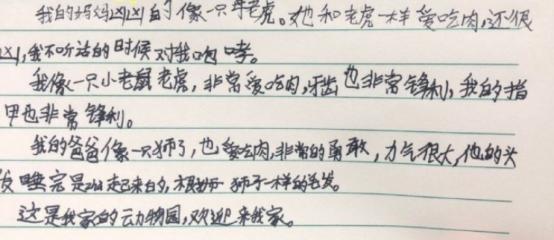 我的妈妈凶凶的像一只母老虎。她和老虎一样爱吃肉,还很
凶,我不听话的时候对我咆哮。
我像一只小老鼠老虎,非常爱吃肉,牙齿也非常锋利,我的指
甲也非常锋利。
我的爸爸像一只狮子,也爱吃肉,非常的勇敢,力气很大,他的头
发睡完是 起来的,根 狮子一样的毛发。
这是我家的动物园,欢迎来我家。